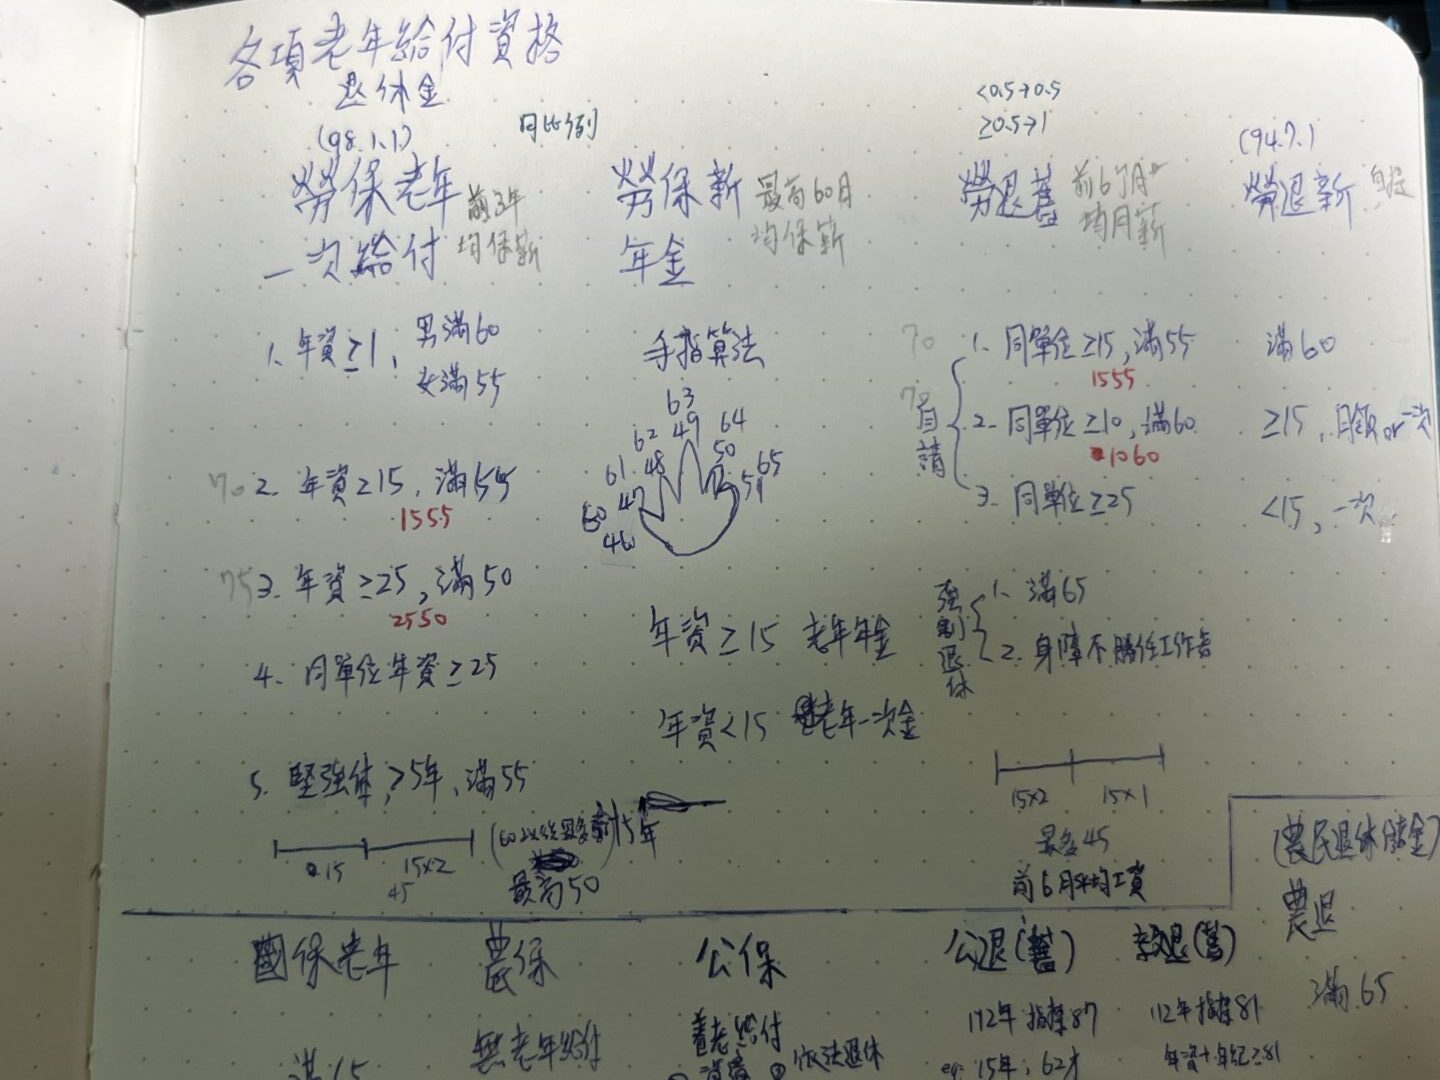 各項老年給付資格
退休金
(98.1.1)
同比例
勞保老年
一次給付
前3年
均保薪
1. 年資≥1,
男滿60
女滿55
70 2. 年資≥15, 滿55
1555
75 3. 年資≥25, 滿50
2550
4. 同單位年資≥25
5. 堅強体, ≥5年, 滿55
15
15×2
45
5年
最高50
勞保新
年金
最高60月
均保薪
手指算法
60 61 62 63 64 65
46 47 48 49 50 51
年資≥15 老年年金
年資<15 老年一次金
<0.5→0.5
≥0.5→1
勞退舊
前6個月
均月薪
自請
70 1. 同單位≥15, 滿55
1555
70 2. 同單位≥10, 滿60
1060
3. 同單位≥25
強制退休
1. 滿65
2. 身障不勝任工作者
15×2 15×1
最多45
前6月平均工資
(94.7.1
勞退新 自提
滿60
≥15, 月領or一次
<15, 一次
(農民退休儲金)
農退
滿65
國保老年
農保
無老年給付
公保
養老給付
依法退休
公退(舊)
112年 指標87
eg. 15年, 62才
教退(舊)
112年指標81
年資+年紀≥81